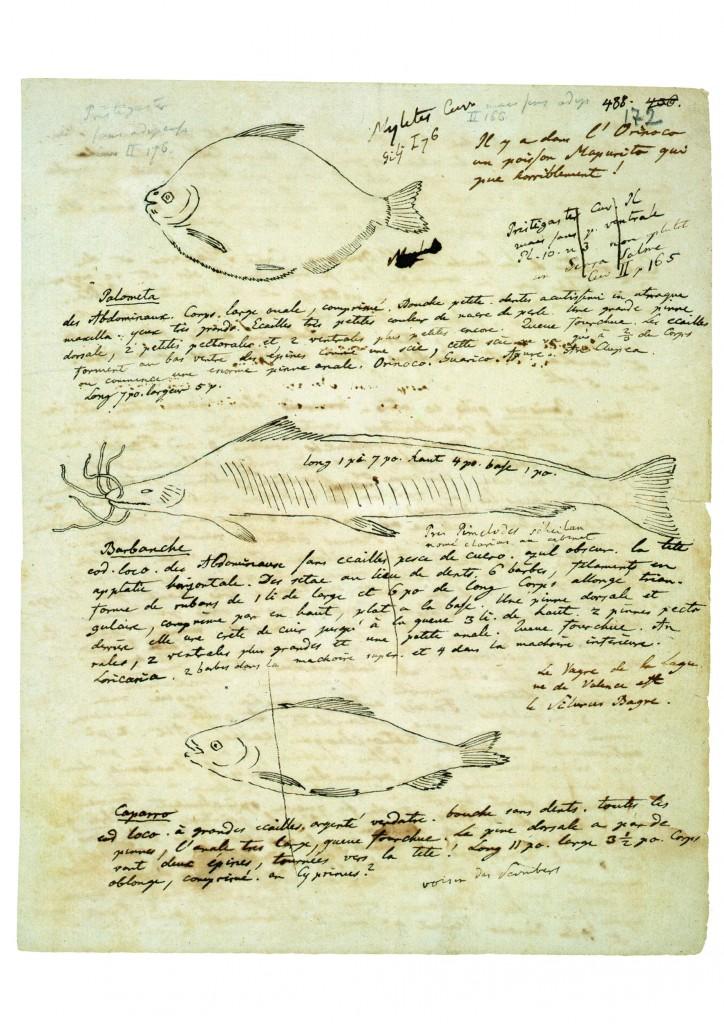 Prestigaster
sans adipeuse
Cuv II 176.
Myletes Cuv
Gilj I 76
mais sans adip
II 166
488. 436.
172
Il y a dans l'Orinoco
un poisson Mapurito qui
pue horriblement!
Pristigaster Cuv Pl
mais sans p. ventrale
Pl. 10. n 3 non plutot
un Serra Salme
Cuv II p 165
Palometa
des Abdominaux. Corps large ovale, comprimé. Bouche petite. dentes acutissimi in utraque
maxilla. yeux très grands. Ecailles très petites couleur de nacre de perle. Une grande pinne
dorsale, 2 petites pectorales et 2 ventrales plus petites encore. Queue fourchue. les ecailles
forment au bas ventre des épines comme une scie, cette scie 2/3 de Corps
ou commence une enorme pinne anale. Orinoco. Guarico. Apure. An Clupea.
Long 7 po. largeur 5 p.
long 1 pi 7 po. haut 4 po. base 1 po.
Près Pimelodes
nomé clarias au cabinet
Barbanche
eod. loco. des Abdominaux sans ecailles, pesce de cuero. azul obscur. la tete
applatie horizontale. Des setae au lieu de dents. 6 barbes, filaments en
forme de rubans de 1 li de large et 6 po de long. Corps allongé trian-
gulaire, comprimé par en haut, plat a la base. Une pinne dorsale et
derrière elle une crête de cuir jusqu'à la queue 3 li. de haut. 2 pinnes pecto
rales, 2 ventrales plus grandes et une petite anale. Queue fourchue. An
Loricaria. 2 barbes dans la machoire super. et 4 dans la machoire inferieure.
Le Vagre de la Lagu
ne de Valence est
le Silurus Bagre.
Caparro
eod loco. à grandes ecailles, argenté verdatre. bouche sans dents. toutes les
pinnes, l'anale très large, queue fourchue. Le pine dorsale a par de
vant deux epines, tournées vers la tete! Long 11 po. large 3 1/2 po. Corps
oblonge, comprimé. an Cyprinus?
voisin des Scombers